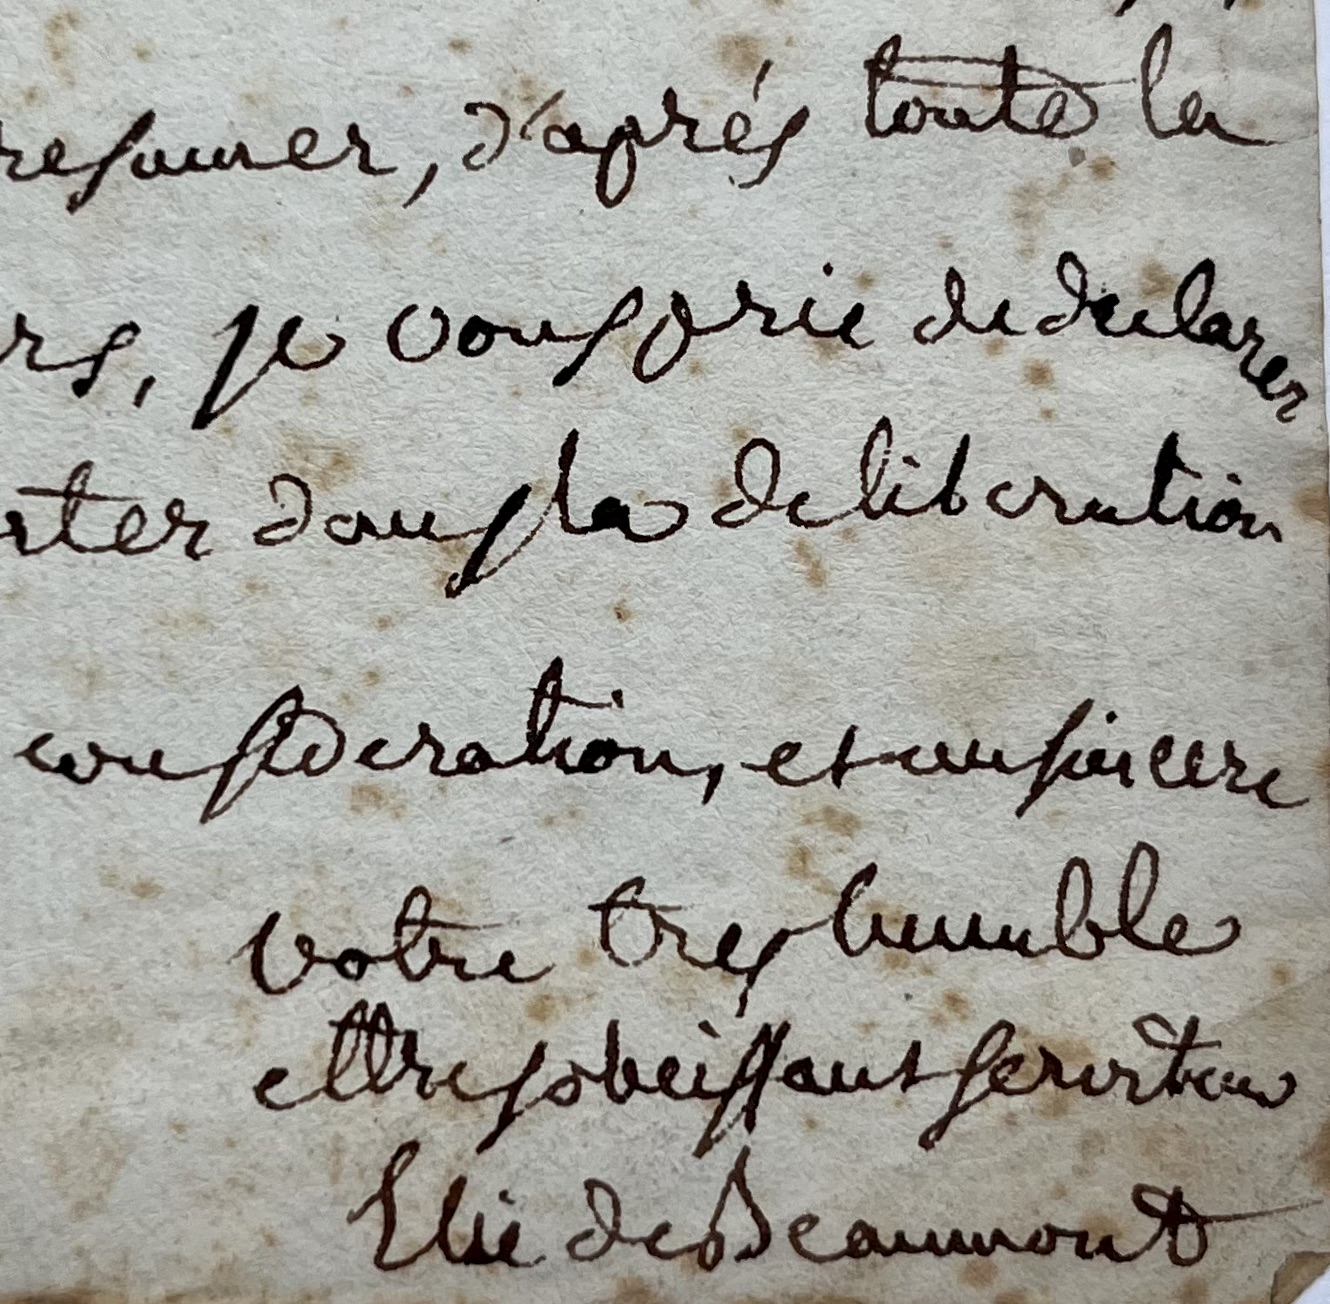 resumer, d'aprés toute la
rs, je vous prie de declarer
rter dans la deliberation
consideration, et un sincere
votre tres humble
et tres obeissant serviteur
Elie de Beaumont